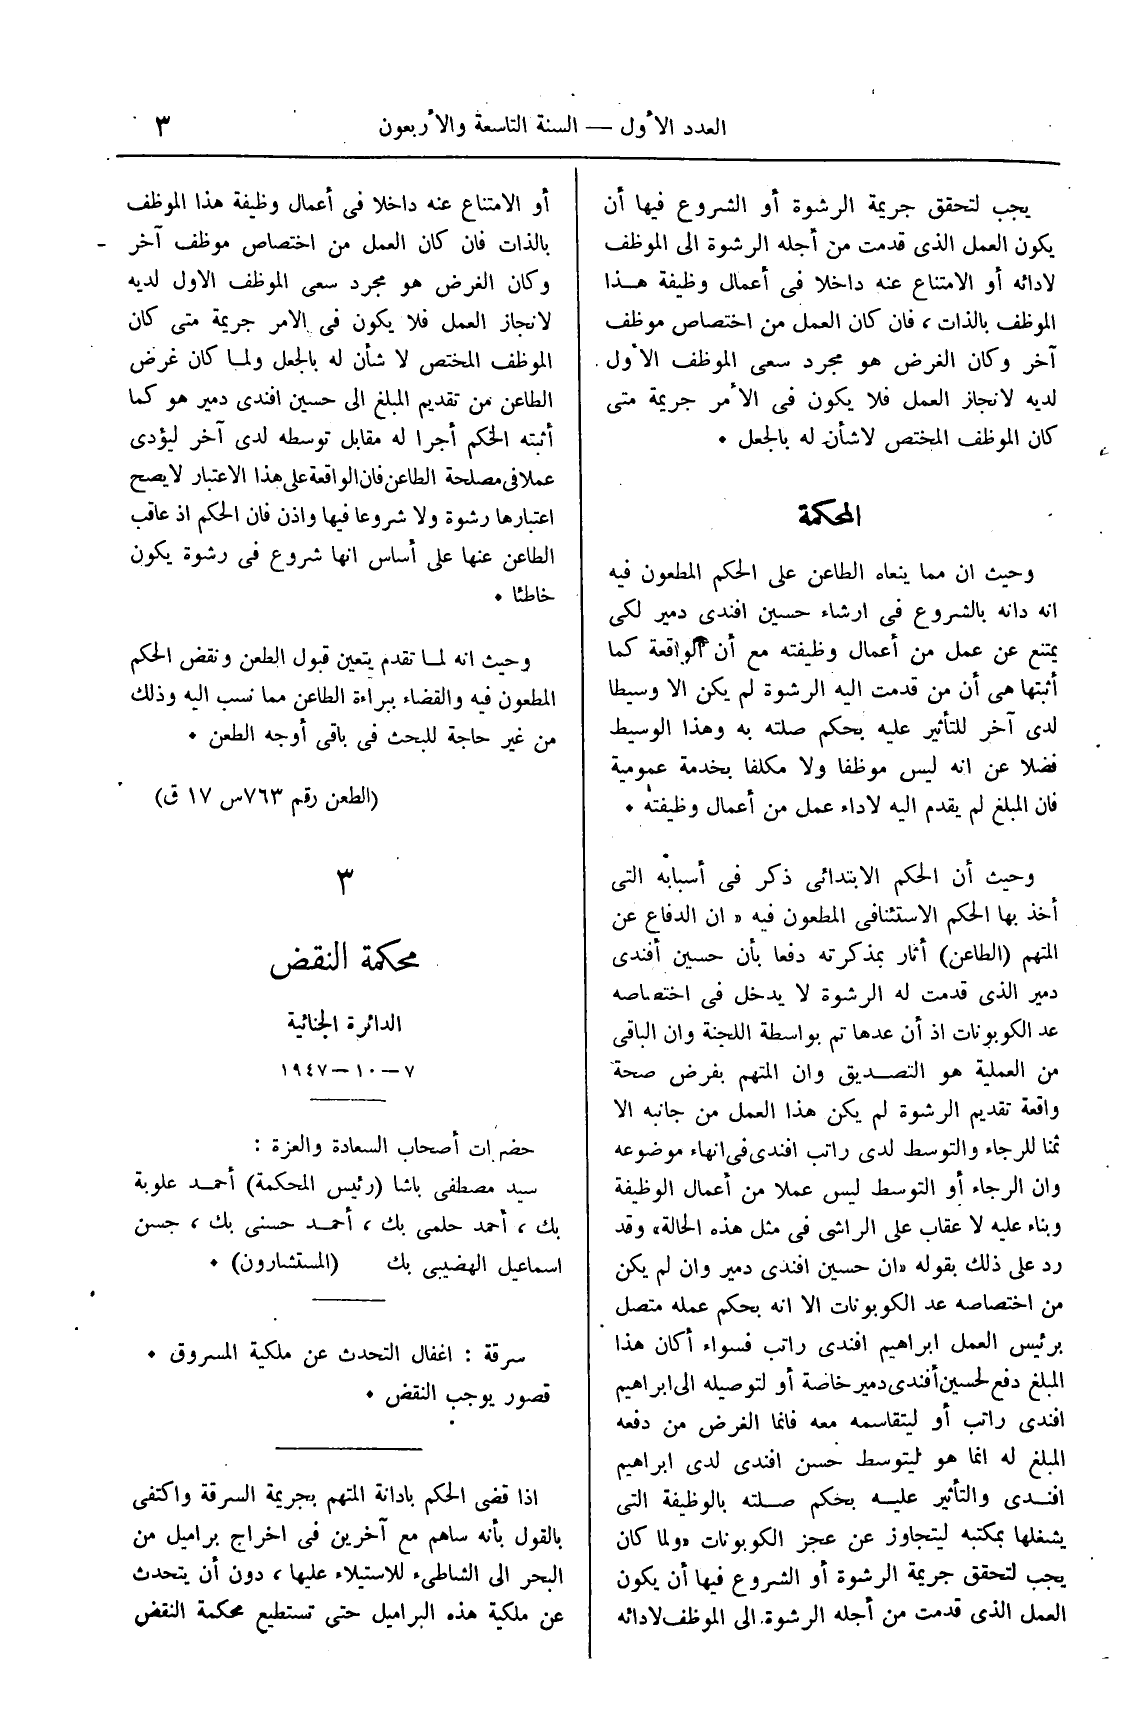 العدد الأول — السنة التاسعة والأربعون
٣
يجب لتحقق جريمة الرشوة أو الشروع فيها أن
يكون العمل الذى قدمت من أجله الرشوة الى الموظف
لادائه أو الامتناع عنه داخلا فى أعمال وظيفة هــذا
الموظف بالذات ، فان كان العمل من اختصاص موظف
آخر وكان الغرض هو مجرد سعى الموظف الأول
لديه لانجاز العمل فلا يكون فى الأمر جريمة متى
كان الموظف المختص لاشأن له بالجعل •
المحكمة
وحيث ان مما ينعاه الطاعن على الحكم المطعون فيه
انه دانه بالشروع فى ارشاء حسين افندى دمير لكى
يمتنع عن عمل من أعمال وظيفته مع أن الواقعة كما
أثبتها هى أن من قدمت اليه الرشوة لم يكن الا وسيطا
لدى آخر للتأثير عليه بحكم صلته به وهذا الوسيط
فضلا عن انه ليس موظفا ولا مكلفا بخدمة عمومية
فان المبلغ لم يقدم اليه لاداء عمل من أعمال وظيفته •
وحيث أن الحكم الابتدائى ذكر فى أسبابه التى
أخذ بها الحكم الاستئنافى المطعون فيه « ان الدفاع عن
المتهم (الطاعن) أثار بمذكرته دفعا بأن حسين أفندى
دمير الذى قدمت له الرشوة لا يدخل فى اختصاصه
عد الكوبونات اذ أن عدها تم بواسطة اللجنة وان الباقى
من العملية هو التصــديق وان المتهم بفرض صحة
واقعة تقديم الرشوة لم يكن هذا العمل من جانبه الا
ثمنا للرجاء والتوسط لدى راتب افندى فى انهاء موضوعه
وان الرجاء أو التوسط ليس عملا من أعمال الوظيفة
وبناء عليه لا عقاب على الراشى فى مثل هذه الحالة» وقد
رد على ذلك بقوله «ان حسين افندى دمير وان لم يكن
من اختصاصه عد الكوبونات الا انه بحكم عمله متصل
برئيس العمل ابراهيم افندى راتب فسواء أكان هذا
المبلغ دفع لحسين أفندى دمير خاصة أو لتوصيله الى ابراهيم
افندى راتب أو ليتقاسمه معه فانما الغرض من دفعه
المبلغ له انما هو ليتوسط حسن افندى لدى ابراهيم
افنــدى والتأثير عليــه بحكم صــلته بالوظيفة التى
يشغلها بمكتبه ليتجاوز عن عجز الكوبونات «ولما كان
يجب لتحقق جريمة الرشوة أو الشروع فيها أن يكون
العمل الذى قدمت من أجله الرشوة الى الموظف لادائه
أو الامتناع عنه داخلا فى أعمال وظيفة هذا الموظف
بالذات فان كان العمل من اختصاص موظف آخر
وكان الغرض هو مجرد سعى الموظف الاول لديه
لانجاز العمل فلا يكون فى الامر جريمة متى كان
الموظف المختص لا شأن له بالجعل ولمـا كان غرض
الطاعن من تقديم المبلغ الى حسين افندى دمير هو كما
أثبته الحكم أجرا له مقابل توسطه لدى آخر ليؤدى
عملا فى مصلحة الطاعن فان الواقعة على هذا الاعتبار لا يصح
اعتبارها رشوة ولا شروعا فيها واذن فان الحكم اذ عاقب
الطاعن عنها على أساس انها شروع فى رشوة يكون
خاطئا •
وحيث انه لمـا تقدم يتعين قبول الطعن ونقض الحكم
المطعون فيه والقضاء ببراءة الطاعن مما نسب اليه وذلك
من غير حاجة للبحث فى باقى أوجه الطعن •
(الطعن رقم ٧٦٣س ١٧ ق)
٣
محكمة النقض
الدائرة الجنائية
٧ – ١٠ – ١٩٤٧
حضرات أصحاب السعادة والعزة :
سيد مصطفى باشا (رئيس المحكمة) أحمــد علوبة
بك ، أحمد حلمى بك ، أحمــد حسنى بك ، حسن
اسماعيل الهضيبى بك (المستشارون) •
سرقة : اغفال التحدث عن ملكية المسروق •
قصور يوجب النقض •
اذا قضى الحكم بادانة المتهم بجريمة السرقة واكتفى
بالقول بأنه ساهم مع آخرين فى اخراج براميل من
البحر الى الشاطىء للاستيلاء عليها ، دون أن يتحدث
عن ملكية هذه البراميل حتى تستطيع محكمة النقض